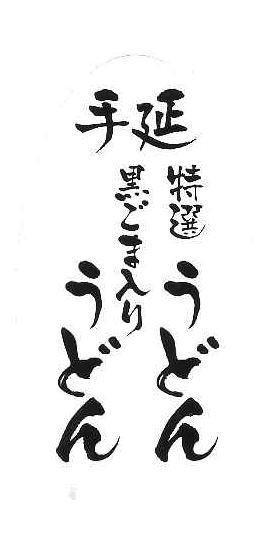 手延
特選
うどん
黒ごま入り
うどん